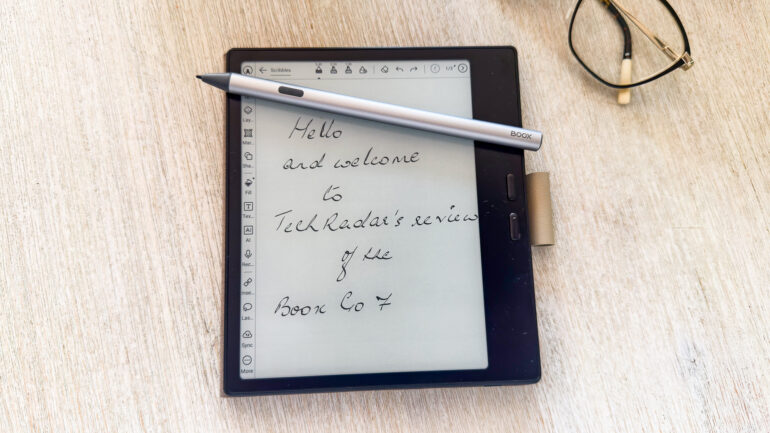 Scribbles
1/3
BOOX
Lay...
Mat...
Sha...
Fill
Tex...
AI
AI
Rec...
Inser...
Las...
Sync
More
Hello
and welcome
to
TechRadar's review
of the
Boox Go 7